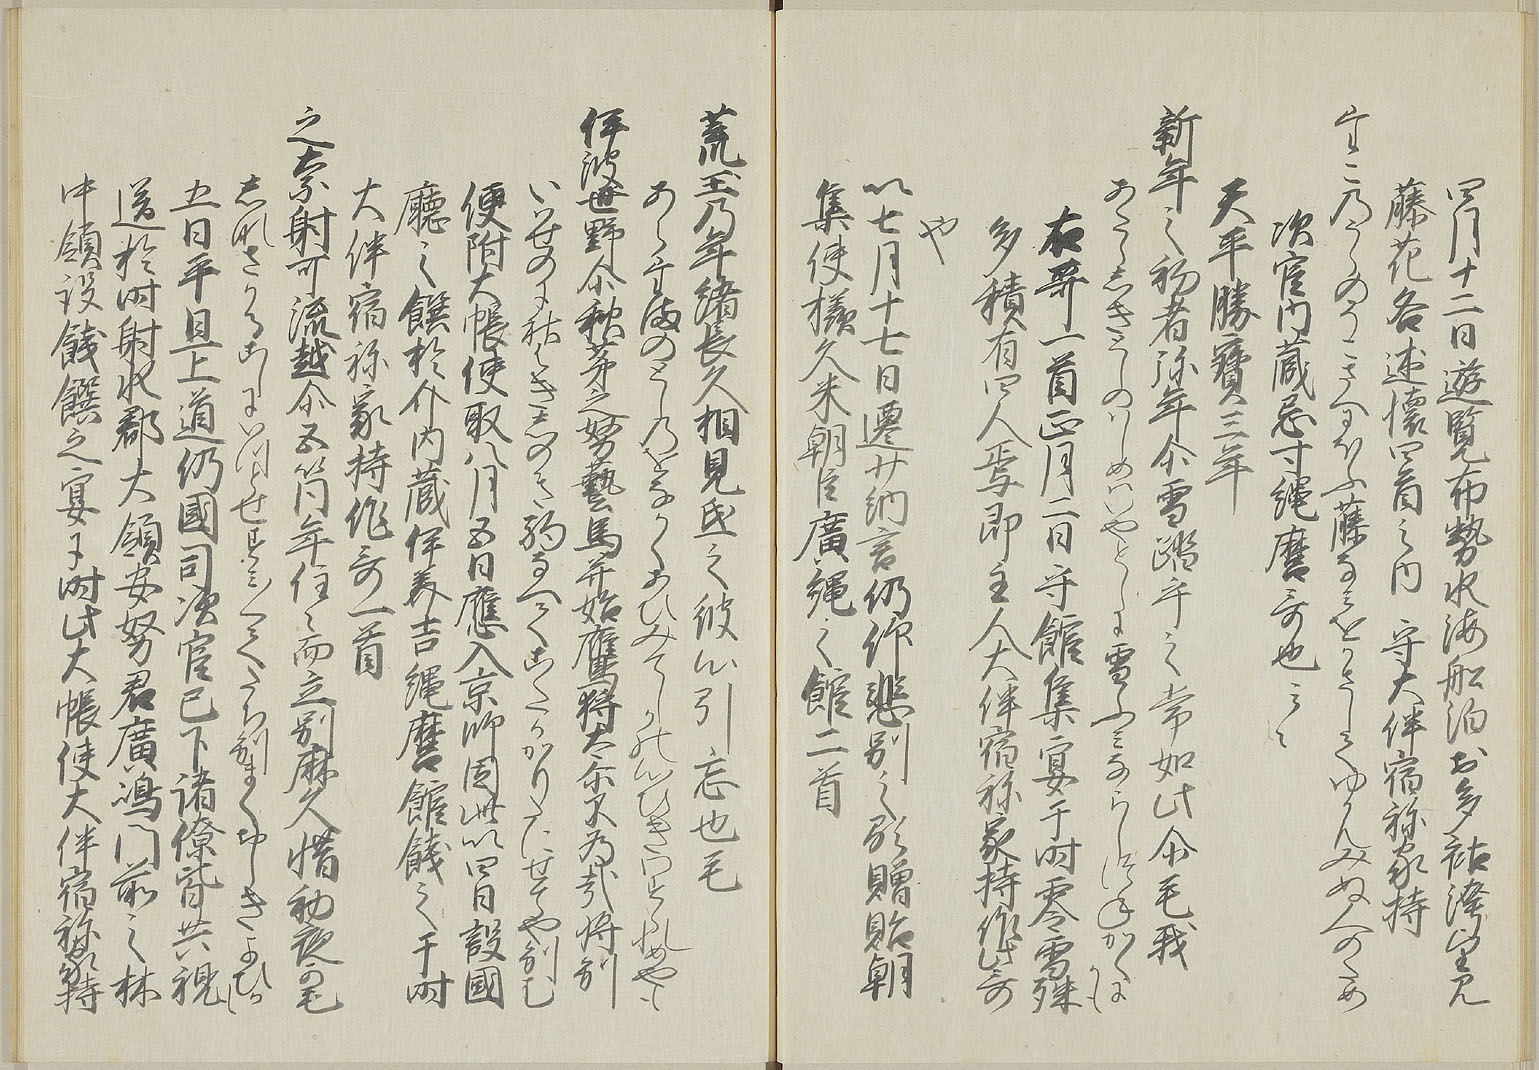 四月十二日遊覧布勢水海船泊於多祜湾望見
藤花各述懐四首之内 守大伴宿祢家持
次官内蔵忌寸縄麿哥也云々
天平勝寶三年
新年之初者弥年尓雪踏平之常如此尓毛我
あたらしきとしのはしめはいやとしに雪ふみならしつねかくに
かも
右哥一首正月二日守館集宴于時零雪殊
多積有四人焉即主人大伴宿祢家持作此哥
や
以七月十七日遷少納言仍作悲別之哥贈貽朝
集使掾久米朝臣廣縄之館二首
荒玉乃年緒長久相見氐之彼心引忘也毛
あらたまのとしのをなかくあひみてしかの心ひきわすれめやも
伊波世野尓秋芽之努藝馬並始鷹猟太尓不為哉将別
いはせのに秋はきしのき駒なへてこたかかりたにせてや別む
便附大帳使取八月五日應入京師因此以四日設國
廳之饌於介内蔵伊美吉縄麿館餞之于時
大伴宿祢家持作哥一首
之奈射可流越尓五箇年住々而立別麻久惜初夜可毛
五日平旦上道仍國司次官已下諸僚皆共視
送於時射水郡大領安努君廣嶋門前之林
中領設餞饌之宴于時此大帳使大伴宿祢家持